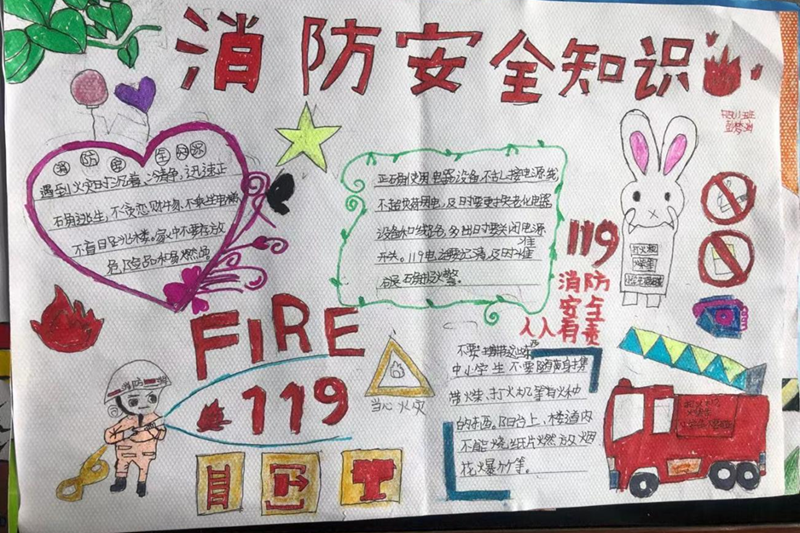 消防安全知识
消防安全知识
遇到火灾时要沉着、冷静,迅速正
确逃生,不贪恋财物、不乘坐电梯
不盲目跳楼。家中不要存放
危险品如易燃品
正确使用电器设备,不乱接电源线
不超负荷用电,及时更换老化电器
设备和线路,外出时要关闭电源
开关。119电话要记清,及时准
确报火警。
119
消防
安全
人人有责
FIRE
119
消防
当心火灾
中小学生不要随身携
带火柴、打火机等火种
的东西。阳台上、楼道内
不能烧纸片燃放烟
花爆竹等。